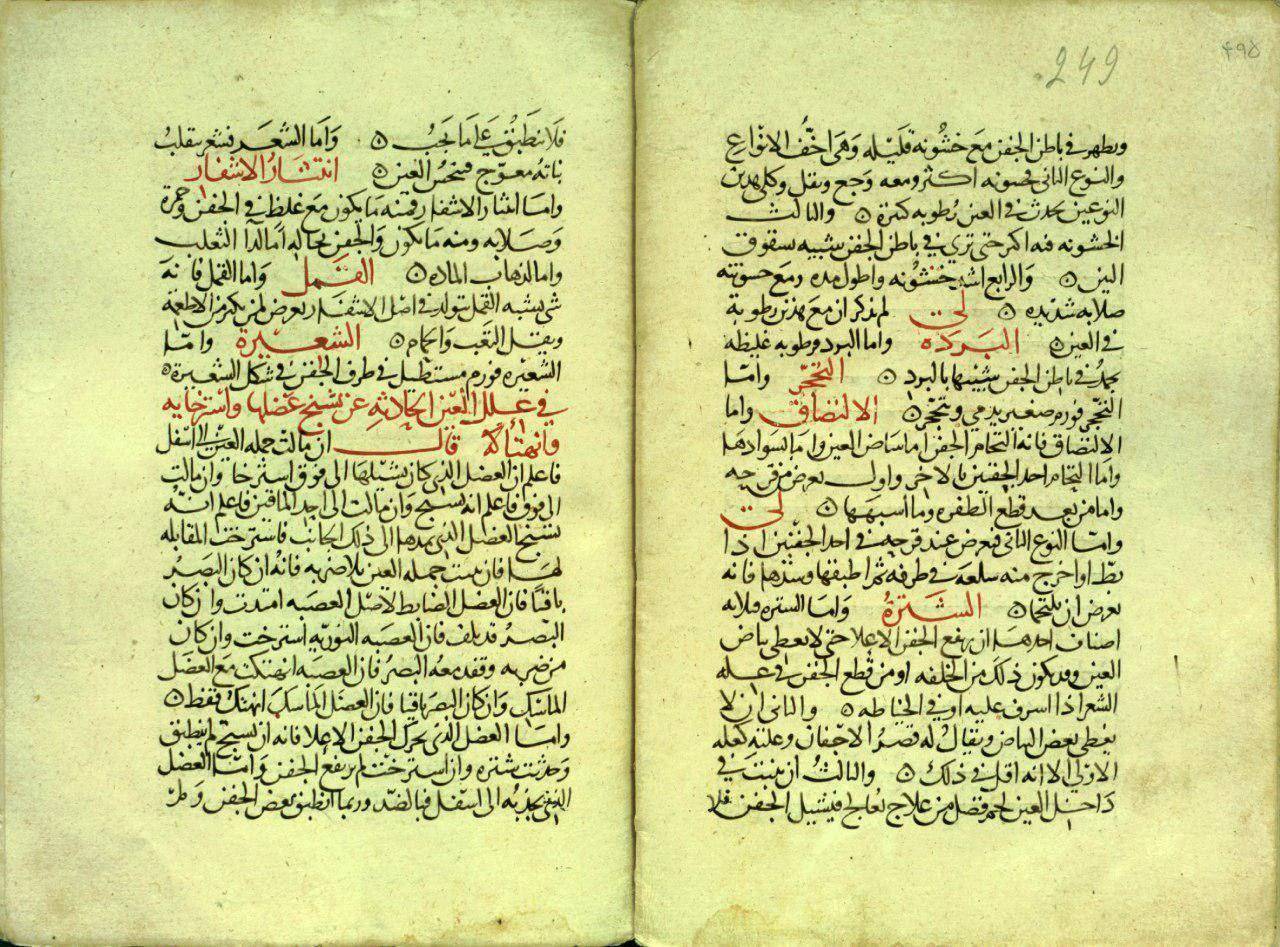 249
۴۹۵
ويظهر في باطن الجفن مع خشونه قليله وهي اخف الانواع
والنوع الثاني خشونه اكثر ومعه وجع وثقل وكلي هذين
النوعين يحدث في العين رطوبه كثيرة ه والثالث
الخشونه فيه اكثر حتى تري في باطن الجفن شبيه بشقوق
التين ه والرابع اشد خشونه واطول مده ومع خشونته
صلابه شديده ه لي لم يذكر ان مع هذين رطوبة
في العين ه البردة واما البرد فرطوبه غليظه
تجمد في باطن الجفن شبيها بالبرد ه التحجر واما
التحجر فورم صغير يدمي ويتحجر ه الالتصاق واما
الالتصاق فانه التحام الجفن اما ببياض العين واما بسوادها
واما التحام احد الجفنين بالاخر واول يعرض من قرحه
واما من بعد قطع الظفره وما اشبهها ه لي
واما النوع الثاني فيعرض عند قرحه في احد الجفنين اذا
بط او اخرج منه سلعه في طرفه ثم اطبقها وشدها فانه
يعرض ان يلتحما ه الشترة واما الشتره فثلاثه
اصناف احدها ان يرفع الجفن الاعلا حتى لا يغطي بياض
العين وقد يكون ذلك من الخلقه او من قطع الجفن في عله
الشعر اذا اسرف عليه او في الخياطه ه والثاني ان لا
يغطي بعض البياض ويقال له قصر الاجفان وعلته كعله
الاولى الا انه اقل في ذلك ه والثالث ان ينبت في
داخل العين لحم فضل من علاج يعالج فيشيل الجفن فلا
فلا ينطبق على ما يجب ه واما الشعر فشعر ينقلب
نباته معوج فينخس العين ه انتثار الاشفار
واما انتثار الاشفار فمنه ما يكون مع غلظ في الجفن وحمرة
وصلابه ومنه ما يكون والجفن بحاله اما لدا الثعلب
واما لذهاب الماده ه القمل واما القمل فانه
شي يشبه القمل يتولد في اصل الاشفار ويعرض لمن يكثر من الاطعمة
ويقلل التعب والحمام ه الشعيرة واما
الشعيره فورم مستطيل في طرف الجفن في شكل الشعيرة ه
في علل العين الحادثه عن تشنج عضلها واسترخايه
وانهتاكه قال ان مالت جمله العين الى اسفل
فاعلم ان العضل الذي كان يشيلها الى فوق استرخا وان مالت
الى فوق فاعلم انه تشنج وان مالت الى احد الماقين فاعلم انه
تشنج العضل الذي يمدها الى ذلك الجانب فاسترخت المقابله
لها فان نتت جمله العين بلا ضربه فانه ان كان البصر
باقيا فان العضل الضابط لاصل العصبه امتدت وان كان
البصر قد تلف فان العصبه النوريه استرخت وان كان
من ضربه وفقد معه البصر فان العصبه انهتكت مع العضل
الماسك وان كان البصر باقيا فان العضل الماسك انهتك فقط ه
واما العضل الذي يحرك الجفن الاعلا فانه ان تشنج لم ينطبق
وحدثت شتره وان استرخت لم يرتفع الجفن واما العضل
الذي يجذبه الى اسفل فبالضد وربما انطبق بعض الجفن ولم